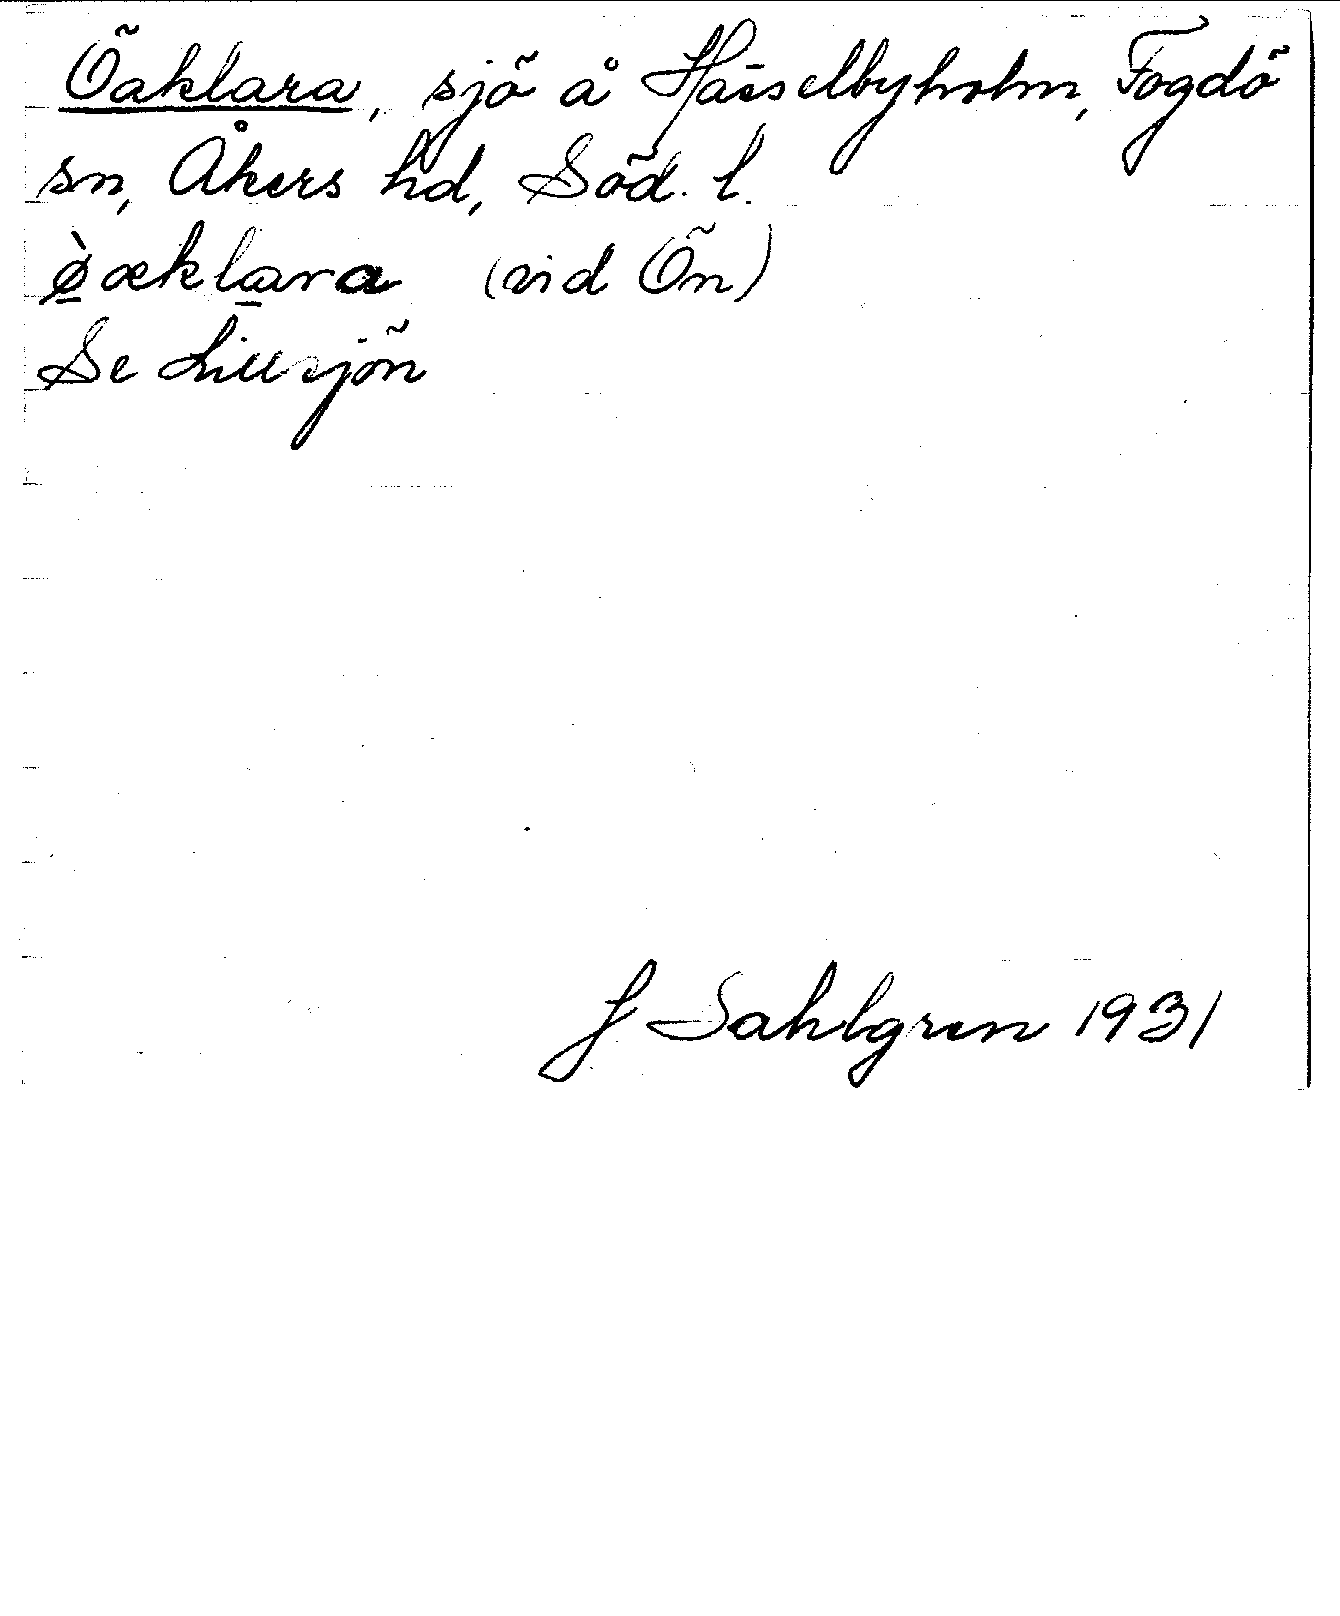 Öaklara, sjö å Hässelbyholm, Fogdö
sn, Åkers hd, Söd. l.
ø̀aklara (vid Ön)
Se Lillsjön
J Sahlgren 1931